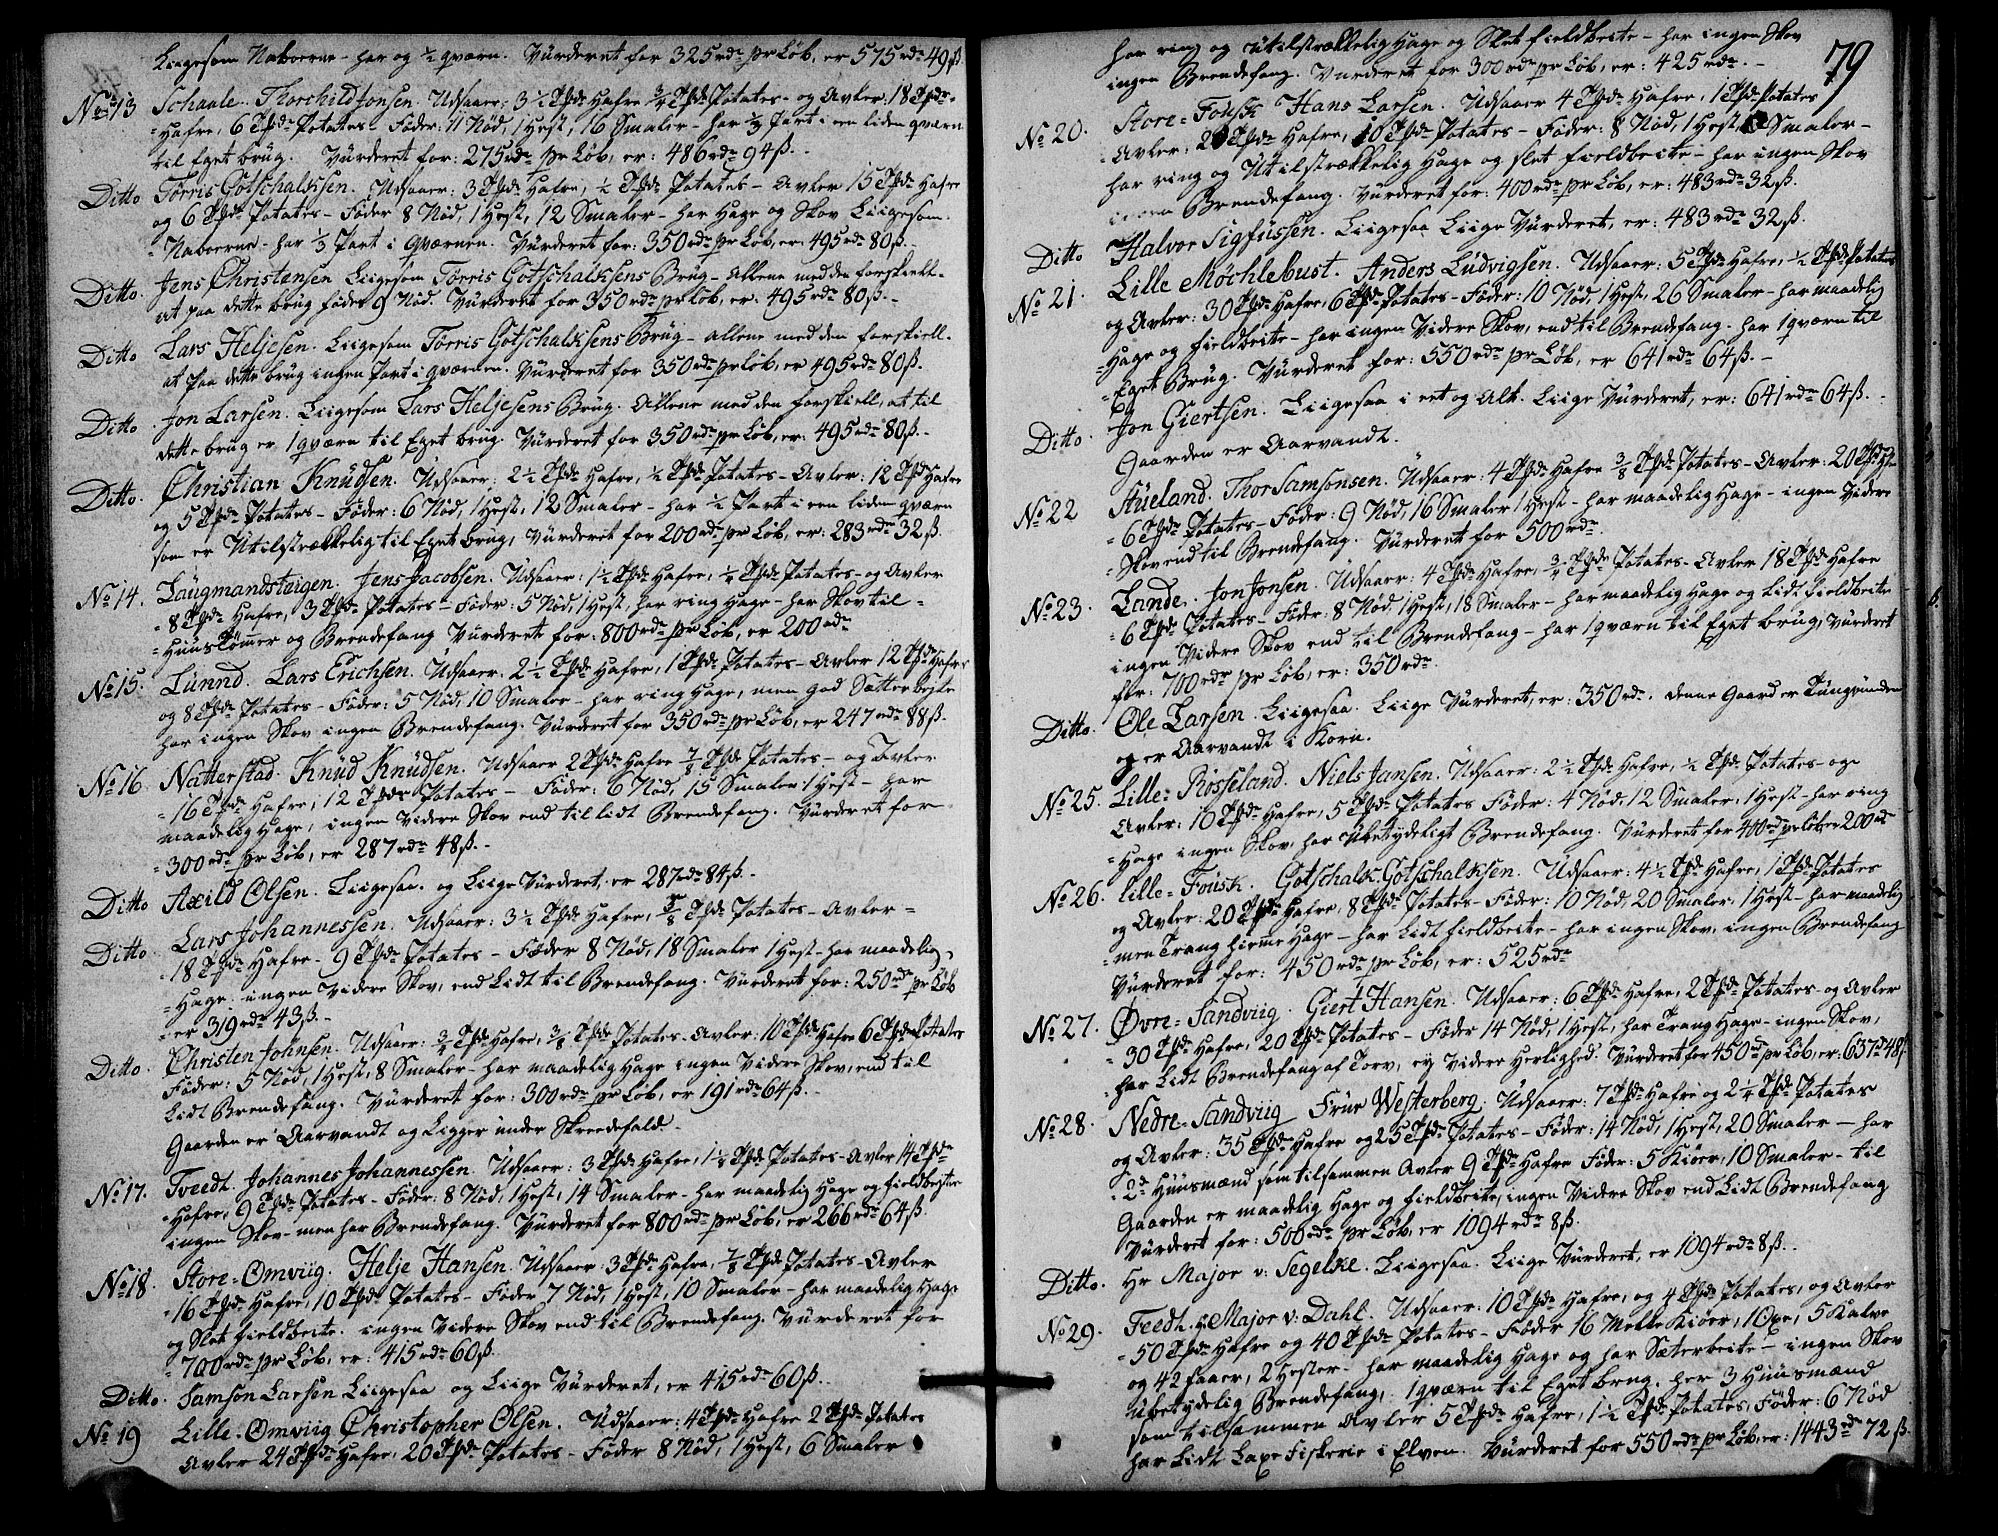 Liigesom Naboerne – har og ½ qværn. Vürderet for 325 rdr pr Løb, er 575 rdr 49 ß.
No 13 Schaale. Thorchild Jonsen. Udsaaer: 3½ Tdr Hafre ¾ Td Potates – og Avler: 18 Tdr
Hafre, 6 Tdr Potates – Føder: 11 Nød, 1 Hest, 16 Smaler – har ⅓ Part i een liden qværn
til Eget brug. Vürderet for: 275 rdr pr Løb, er: 486 rdr 94 ß.
Ditto Torris Gotschalksen. Udsaaer: 3 Tdr Hafre, ½ Td Potates – Avler 15 Tdr Hafre
og 6 Tdr Potates – Føder 8 Nød, 1 Hest, 12 Smaler – har Hage og Skov Liigesom
Naboerne – har ⅓ Part i qværnen. Vürderet for: 350 rdr pr Løb, er: 495 rdr 80 ß. –
Ditto. Jens Christensen Liigesom Torris Gotschalksens Brug – Allene med den forskiell
at paa dette brug fødes 9 Nød. Vürderet for 350 rdr pr Løb, er: 495 rdr 80 ß. –
Ditto Lars Heljesen. Liigesom Torris Gotschalksens Brug – allene med den forskiell.
at paa dette brug ingen Part i qværnen. Vürderet for 350 rdr pr Løb, er 495 rdr 80 ß.
Ditto Jon Larsen. Liigesom Lars Heljesens Brug. Allene med den forskiell, at til
dette brug er 1 qværn til Eget brug. Vürderet for 350 rdr pr Løb, er: 495 rdr 80 ß. –
Ditto. Christian Knüdsen. Udsaaer: 2½ Tdr Hafre, ¼ Td Potates – Avler: 12 Tdr Hafre
og 5 Tdr Potates – Føder: 6 Nød, 1 Hest, 12 Smaler – har ½ Part i een liden qværn
som er Utilstrækkelig til Eget brug, Vürderet for 200 rdr pr Løb, er: 283 rdr 32 ß.
No 14. Laugmandsteigen. Jens Jacobsen. Udsaaer: 1½ Tdr Hafre, ¼ Td Potates – og Avler
8 Tdr Hafre, 3 Tdr Potates – Føder: 5 Nød, 1 Hest, har ring Hage – har Skov til
Huustømer og Brendefang Vürderet for: 800 rdr pr Løb, er 200 rdr
No 15. Lünnd. Lars Erichsen. Udsaaer: 2½ Tdr Hafre, 1 Td Potates – Avler 12 Tdr Hafre
og 8 Tdr Potates – Føder: 5 Nød, 10 Smaler – har ring Hage, men god Sætterbejte
har ingen Skov ingen Brendefang. Vürderet for 350 rdr pr Løb, er 247 rdr 88 ß.
No 16 Natterstad. Knüd Knüdsen. Udsaaer 2 Tdr Hafre ⅞ Td Potates – og Avler
16 Tdr Hafre, 12 Tdr Potates – Føder: 6 Nød, 15 Smaler 1 Hest – har
maadelig Hage, ingen videre Skov end til lidt Brendefang. Vürderet for
300 rdr pr Løb, er 287 rdr 48 ß. –
Ditto Axild Olsen. Liigesaa. og Liige Vürderet, er 287 rdr 84 ß. –
Ditto Lars Johannessen. Udsaaer: 3½ Tdr Hafre, ⅝ Td Potates – Avler
18 Tdr Hafre – 9 Tdr Potates – Føder 8 Nød, 18 Smaler 1 Hest – har maadelig
Hage. ingen Videre Skov, end Lidt til Brendefang. Vürderet for: 250 rdr pr Løb
er 319 rdr 43 ß. –
Ditto. Christen Johnsen. Udsaaer: ¾ Tdr Hafre, ⅜ Td Potates – Avler: 10 Tdr Hafre 6 Tdr Potates
Føder: 5 Nød, 1 Hest, 8 Smaler – har maadelig Hage ingen Videre Skov, end til
Lidt Brendefang. Vürderet for: 300 rdr pr Løb, er 191 rdr 64 ß. –
Gaarden er Aarvandt og Ligger under Skreedefald. –
No 17. Tveedt. Johannes Johannessen. Udsaaer: 3 Tdr Hafre, 1½ Td Potates – Avler 14 Tdr
Hafre, 9 Tdr Potates – Føder: 8 Nød, 1 Hest, 14 Smaler – har maadelig Hage og fieldbeite
ingen Skov – men har Brendefang. Vürderet for 800 rdr pr Løb, er 266 rdr 64 ß.
No 18. Store-Omvüig. Helje Hansen. Udsaaer: 3 Tdr Hafre, ⅞ Td Potates – Avler
16 Tdr Hafre, 10 Tdr Potates – Føder 7 Nød, 1 Hest, 10 Smaler – har maadelig Hage
og Slet fieldbeite. ingen Videre Skov end til Brendefang. Vürderet for
700 rdr pr Løb, er: 415 rdr 60 ß.
Ditto. Samson Larsen Liigesaa og Liige Vürderet, er 415 rdr 60 ß.
No 19 Lille-Omvüig Christopher Olsen. Udsaaer: 4 Tdr Hafre 2 Tdr Potates
Avler 24 Tdr Hafre, 20 Tdr Potates – Føder 8 Nød, 1 Hest, 6 Smaler
79
har ring og utilstrækkelig Hage og Slet fieldbeite – har ingen Skov
ingen Brendefang. Vurderet for 300 rdr pr Løb, er: 425 rdr. –
No 20. Store-Fonsk Hans Larsen. Udsaaer 4 Tdr Hafre, 1 Td Potates
Avler: 20 Tdr Hafre, 10 Tdr Potates – Føder: 8 Nød, 1 Hest, Smaler –
har ring og Utilstrækkelig Hage og slet fieldbeite – har ingen Skov
ingen Brendefang. Vurderet for: 400 rdr pr Løb, er: 483 rdr 32 ß.
Ditto Halvor Sigfüssen. Liigesaa Liige Vürderet, er: 483 rdr 32 ß.
No 21. Lille Møchlebust. Anders Lüdvigsen. Udsaaer: 5 Tdr Hafre, ½ Td Potates
og Avler: 30 Tdr Hafre, 6 Tdr Potates – Føder: 10 Nød, 1 Hest, 26 Smaler – har maadelig
Hage og fieldbeite – har ingen Videre Skov, end til Brendefang. har 1 qværn til
Eget Brug. Vürderet for: 550 rdr pr Løb, er 641 rdr 64 ß. –
Ditto. Jon Giertsen. Liigesaa i eet og Alt. Liige Vürderet, er: 641 rdr 64 ß. –
Gaarden er Aarvandt.
No 22 Stüeland. Thor Samsonsen. Udsaaer: 4 Tdr Hafre ⅜ Td Potates – Avler: 20 Tdr Hafre
6 Tdr Potates – Føder: 9 Nød, 16 Smaler 1 Hest – har maadelig Hage – ingen Videre
Skov end til Brendefang. Vürderet for 500 rdr.
No 23. Lande. Jon Jonsen. Udsaaer: 4 Tdr Hafre, ¾ Td Potates – Avler 18 Tdr Hafre
6 Tdr Potates – Føder: 8 Nød, 1 Hest, 18 Smaler – har maadelig Hage og Lidt fieldbeite
ingen Videre Skov end til Brendefang – har 1 qværn til Eget brug, Vürderet
for: 700 rdr pr Løb, er: 350 rdr.
Ditto. Ole Larsen. Liigesaa. Liige Vürderet, er: 350 rdr. denne Gaard er Tungvünden
og er Aarvandt i Korn.
No 25. Lille-Røsseland. Niels Jansen. Udsaaer: 2½ Tdr Hafre, ¼ Td Potates – og
Avler: 10 Tdr Hafre, 5 Tdr Potates Føder: 4 Nød, 12 Smaler, 1 Hest – har ring
Hage ingen Skov, har Ubetydeligt Brendefang. Vürderet for 400 rd pr Løb er 200 rd
No 26. Lille-Fonsk. Gotschalk Gotschalksen. Udsaaer: 4½ Tdr Hafre, 1 Td Potates
og Avler: 20 Tdr Hafre, 8 Tdr Potates – Føder: 10 Nød, 20 Smaler, 1 Hest – har maadelig
men Trang hieme Hage – har Lidt fieldbeite – har ingen Skov, ingen Brendefang
Vürderet for: 450 rdr pr Løb, er: 525 rdr
No 27. Øvre-Sandviig. Giert Hansen. Udsaaer: 6 Tdr Hafre, 2 Tdr Potates – og Avler
30 Tdr Hafre, 20 Tdr Potates – Føder 14 Nød, 1 Hest, har Trang Hage – ingen Skov,
har Lidt Brendefang af Torv, ey Videre Herlighed. Vürderet for 450 rd pr Løb, er: 637 rd 48 ß
No 28. Nedre-Sandviig Frue Westerberg. Udsaaer: 7 Tdr Hafre og 2¼ Tdr Potates
og Avler: 35 Tdr Hafre og 25 Tdr Potates – Føder: 14 Nød, 1 Hest, 20 Smaler – har
2de Huusmænd som tilsammen Avler 9 Tdr Hafre Føder: 5 Kiøer, 10 Smaler – til
Gaarden er maadelig Hage og fieldbeite, ingen Videre Skov end Lidt Brendefang
Vürderet for: 500 rdr pr Løb, er 1094 rdr 8 ß.
Ditto. Hr Major v: Segelke. Liigesaa. Liige Vürderet, er 1094 rdr 8 ß. –
No 29. Teedt. Hr Major v: Dahl. Udsaaer: 10 Tdr Hafre, og 4 Tdr Potates, og Avler
50 Tdr Hafre og 40 Tdr Potates – Føder 16 Melke Kiøer, 1 Oxe, 5 Kalve
og 42 faaer, 2 Hester – har maadelig Hage og har Sæterbeite – ingen Skov
ubetydelig Brendefang, 1 qværn til Eget brug. her 3 Huusmænd
som tilsammen Avler 5 Tdr Hafre, 1½ Td Potates, Føder: 6 Nød
har Lidt Laxe Fiskerie i Elven. Vürderet for 550 rdr pr Løb, er: 1443 rdr 72 ß.